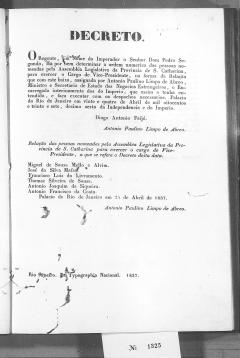 DECRETO.
O Regente, em Nome do Imperador o Senhor Dom Pedro Segundo, Ha por bem determinar a ordem numerica das pessoas nomeadas pela Assembléa Legislativa da Provincia de S. Catharina, para exercer o Cargo de Vice-Presidente, na forma da Relação que com este baixa, assignada por Antonio Paulino Limpo de Abreo, Ministro e Secretario de Estado dos Negocios Estrangeiros, e Encarregado interinamente dos do Imperio, que assim o tenha entendido, e faça executar com os despachos necessarios. Palacio do Rio de Janeiro em vinte e quatro de Abril de mil oitocentos e trinta e sete, decimo sexto da Independencia e do Imperio.
Diogo Antonio Feijó.
Antonio Paulino Limpo de Abreo.
Relação das pessoas nomeadas pela Assembléa Legislativa da Provincia de S. Catharina para exercer o cargo de Vice-Presidente, a que se refere o Decreto desta data.
Miguel de Souza Mello e Alvim.
José da Silva Mafra.
Francisco Luiz do Livramento.
Thomaz Silveira de Souza.
Antonio Joaquim de Siqueira.
Antonio Francisco da Costa.
Palacio do Rio de Janeiro em 24 de Abril de 1837.
Antonio Paulino Limpo de Abreo.
Typographia Nacional. 1837.
Nº 1325